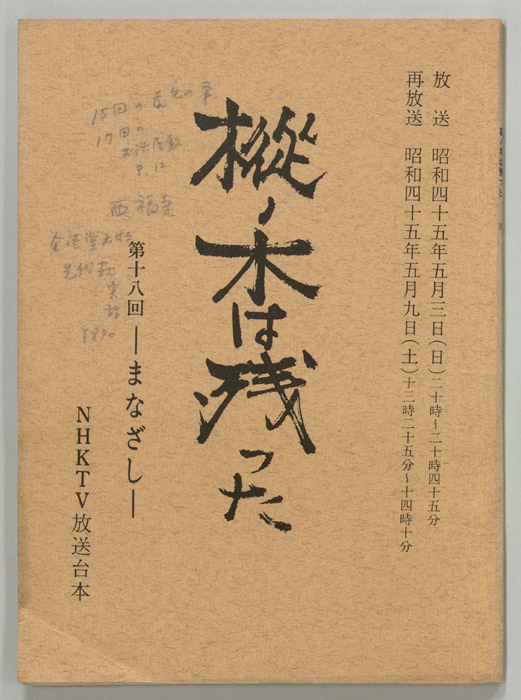 放送 昭和四十五年五月三日(日)二十時〜二十時四十五分
再放送 昭和四十五年五月九日(土)十三時二十五分〜十四時十分
樅ノ木は残った
第十八回 ―まなざし―
NHKTV放送台本
15回の
17回の
P.12
西福寺